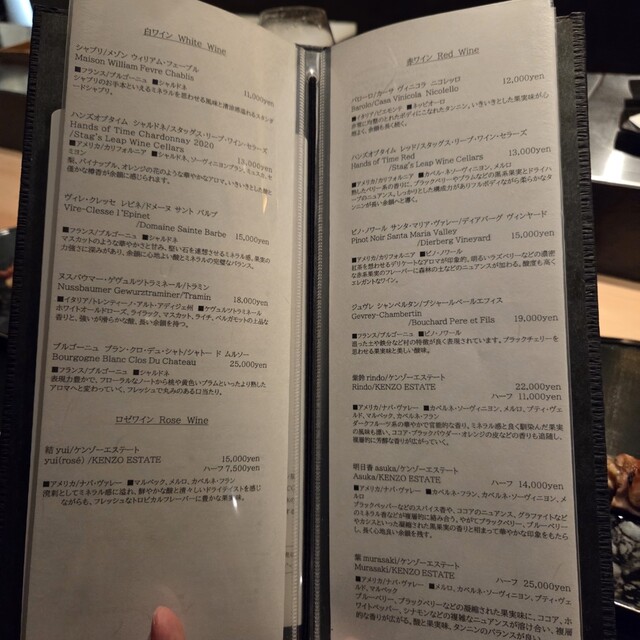 白ワイン White Wine
シャブリ/メゾン ウィリアム・フェーブル
Maison William Fevre Chablis
11,000yen
■フランス/ブルゴーニュ ■シャルドネ
シャブリのお手本といえるミネラルを思わせる風味と清涼感溢れるスタンダードシャブリ。
ハンズオブタイム シャルドネ/スタッグス・リープ・ワイン・セラーズ
Hands of Time Chardonnay 2020
/Stag's Leap Wine Cellars
13,000yen
■アメリカ/カリフォルニア ■シャルドネ、ソーヴィニヨンブラン
梨、パイナップル、オレンジの花のような華やかなアロマ。いきいきとした酸と
僅かな樽香が余韻に感じられます。
ヴィレ・クレッセ レピネ/ドメーヌ サント バルブ
Vire-Clesse l'Epinet
/Domaine Sainte Barbe
15,000yen
■フランス/ブルゴーニュ ■シャルドネ
マスカットのような華やかさと甘み、堅い石を連想させるミネラル感。果実の
力強さに深みがあり、余韻に心地よい酸とミネラルの完璧なバランス。
ヌスバウマー・ゲヴュルツトラミネール/トラミン
Nussbaumer Gewurztraminer/Tramin
18,000yen
■イタリア/トレンティーノ・アルト・アディジェ州 ■ゲヴュルツトラミネール
ホワイトオールドローズ、ライラック、マスカット、ライチ、ベルガモットの上品な
香りと、強いが滑らかな酸、長い余韻を持つ。
ブルゴーニュ ブラン・クロ・デュ・シャトー/シャトー ド ムルソー
Bourgogne Blanc Clos Du Chateau
25,000yen
■フランス/ブルゴーニュ ■シャルドネ
表現力豊かで、フローラルなノートから桃や黄色いプラムといったより熟した
アロマへと変わっていく、フレッシュで丸みのある口当たり。
ロゼワイン Rose Wine
結 yui/ケンゾーエステート
yui(rosé) /KENZO ESTATE
15,000yen
ハーフ 7,500yen
■アメリカ/ナパ・ヴァレー ■マルベック、メルロ、カベルネ・フラン
溌剌としてミネラル感に溢れ、鮮やかな酸と清々しいドライテイストを感じ
ながらも、フレッシュなトロピカルフレーバーに豊かな果実味。
赤ワイン Red Wine
バローロ/カーサ ヴィニコラ ニコレッロ
Barolo/Casa Vinicola Nicolello
12,000yen
■イタリア/ピエモンテ ■ネッビオーロ
非常に均整のとれたボディにこなれたタンニン、いきいきとした果実味が心
地よく、余韻も長く続く。
ハンズオブタイム レッド/スタッグス・リープ・ワイン・セラーズ
Hands of Time Red
/Stag's Leap Wine Cellars
13,000yen
■アメリカ/カリフォルニア ■カベルネ・ソーヴィニヨン、メルロ
熟したベリー系の香りに、ブラックベリーやプラムなどの黒系果実とドライハ
ーブのニュアンス。しっかりとした構成力がありフルボディながら柔らかなタ
ンニンが長い余韻へと導く。
ピノ・ノワール サンタ・マリア・ヴァレー/ディアバーグ ヴィンヤード
Pinot Noir Santa Maria Valley
/Dierberg Vineyard
15,000yen
■アメリカ/カリフォルニア ■ピノ・ノワール
紅茶を想わせるデリケートなアロマが印象的。明るいラズベリーなどの濃密
な赤系果実のフレーバーに森林の土などのニュアンスが加わる。酸度も高く
エレガントなワイン。
ジュヴレ シャンベルタン/ブシャールペールエフィス
Gevrey-Chambertin
/Bouchard Pere et Fils
19,000yen
■フランス/ブルゴーニュ ■ピノ・ノワール
湿った土や鉄分など村の特徴が良く表現されています。ブラックチェリーを
思わせる果実味と美しい酸味。
紫鈴 rindo/ケンゾーエステート
Rindo/KENZO ESTATE
22,000yen
ハーフ 11,000yen
■アメリカ/ナパ・ヴァレー ■カベルネ・ソーヴィニヨン、メルロ、プティ・ヴェ
ルド、マルベック、カベルネ・フラン
ダークフルーツ系の華やかで官能的な香り、ミネラル感と良く馴染んだ果実
の風味も濃い、ココア・ブラックパウダー・オレンジの皮などの香りも追随し、
複層的に芳醇な香りが広がっていく。
明日香 asuka/ケンゾーエステート
Asuka/KENZO ESTATE
ハーフ 14,000yen
■アメリカ/ナパ・ヴァレー ■カベルネ・フラン、カベルネ・ソーヴィニヨン、メ
ルロ
ブラックペッパーなどのスパイス香や、ココアのニュアンス、グラファイトなど
のミネラル香などが複層的に絡み合う。やがてブラックベリー、ブルーベリー
やカシスといった凝縮された黒果実の香りと相まって華やかな印象をもたら
し、長く心地良い余韻を残す。
紫 murasaki/ケンゾーエステート
Murasaki/KENZO ESTATE
ハーフ 25,000yen
■アメリカ/ナパ・ヴァレー ■メルロ、カベルネ・ソーヴィニヨン、プティ・ヴェ
ルド、マルベック
ブルーベリー、ブラックベリーなどの凝縮された果実味に、ココア、ホ
ワイトペッパー、シナモンなどの複雑なニュアンスが溶け合い、複層
的な香りが広がる。酸と果実味、タンニンのバランスが良い